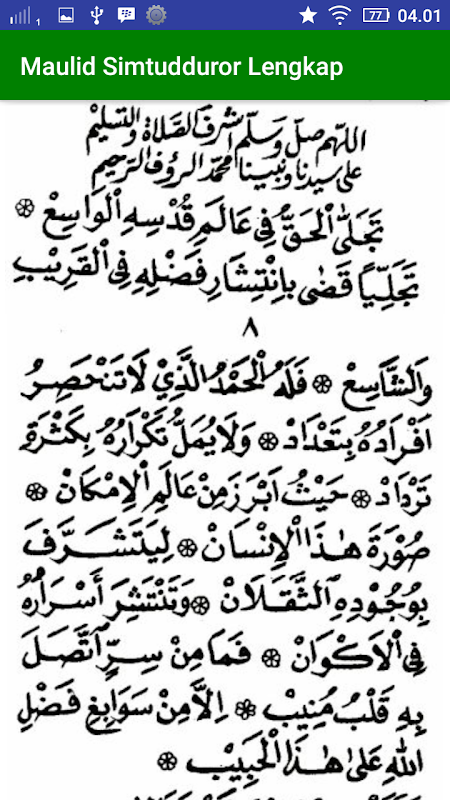 1 77 04.01
Maulid Simtudduror Lengkap
اللهم صل وسلم اشرف الصلاة والتسليم
على سيدنا ونبينا محمد الرؤف الرحيم
تَجَلَّى الْحَقُّ فِي عَالَمِ قُدْسِهِ الْوَاسِعْ ۞
تَجَلِّيًا قَضٰى بِانْتِشَارِ فَضْلِهِ فِي الْقَرِيْبِ
٨
وَالشَّاسِعْ ۞ فَلَهُ الْحَمْدُ الَّذِيْ لَا تَنْحَصِرُ
اَفْرَادُهُ بِتَعْدَادْ ۞ وَلَا يُمَلُّ تَكْرَارُهُ بِكَثْرَةِ
تَرْدَادْ ۞ حَيْثُ اَبْرَزَ مِنْ عَالَمِ الْاِمْكَانْ ۞
صُوْرَةَ هٰذَا الْاِنْسَانْ ۞ لِيَتَشَرَّفَ
بِوُجُوْدِهِ الثَّقَلَانْ ۞ وَتَنْتَشِرَ أَسْرَارُهُ
فِي الْاَكْوَانْ ۞ فَمَا مِنْ سِرٍّ اتَّصَلَ
بِهِ قَلْبُ مُنِيْبْ ۞ اِلَّا مِنْ سَوَابِغِ فَضْلِ
اللهِ عَلىٰ هٰذَا الْحَبِيْبْ ۞